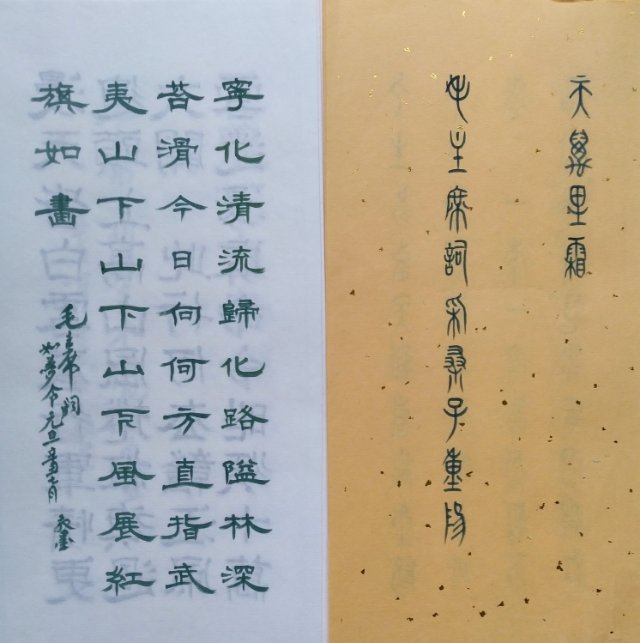 天萬里霜
毛主席詞采桑子重陽
寧化清流歸化路隘林深
苔滑今日向何方直指武
夷山下山下山下風展紅
旗如畫
毛主席詞
如夢令元旦